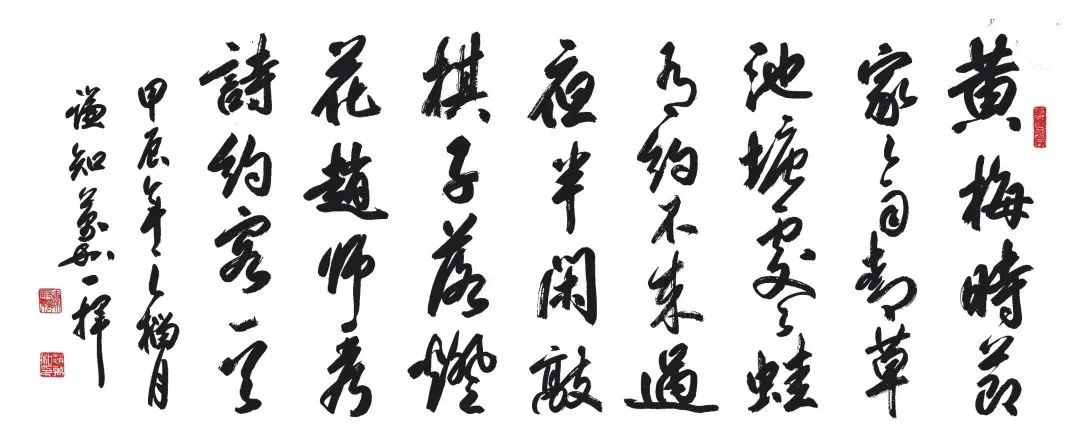 黄梅時節
家々雨青草
池塘處々蛙
有約不來過
夜半閑敲
棋子落燈
花趙師秀
詩約客一首
甲辰年之榴月
謙知一揮